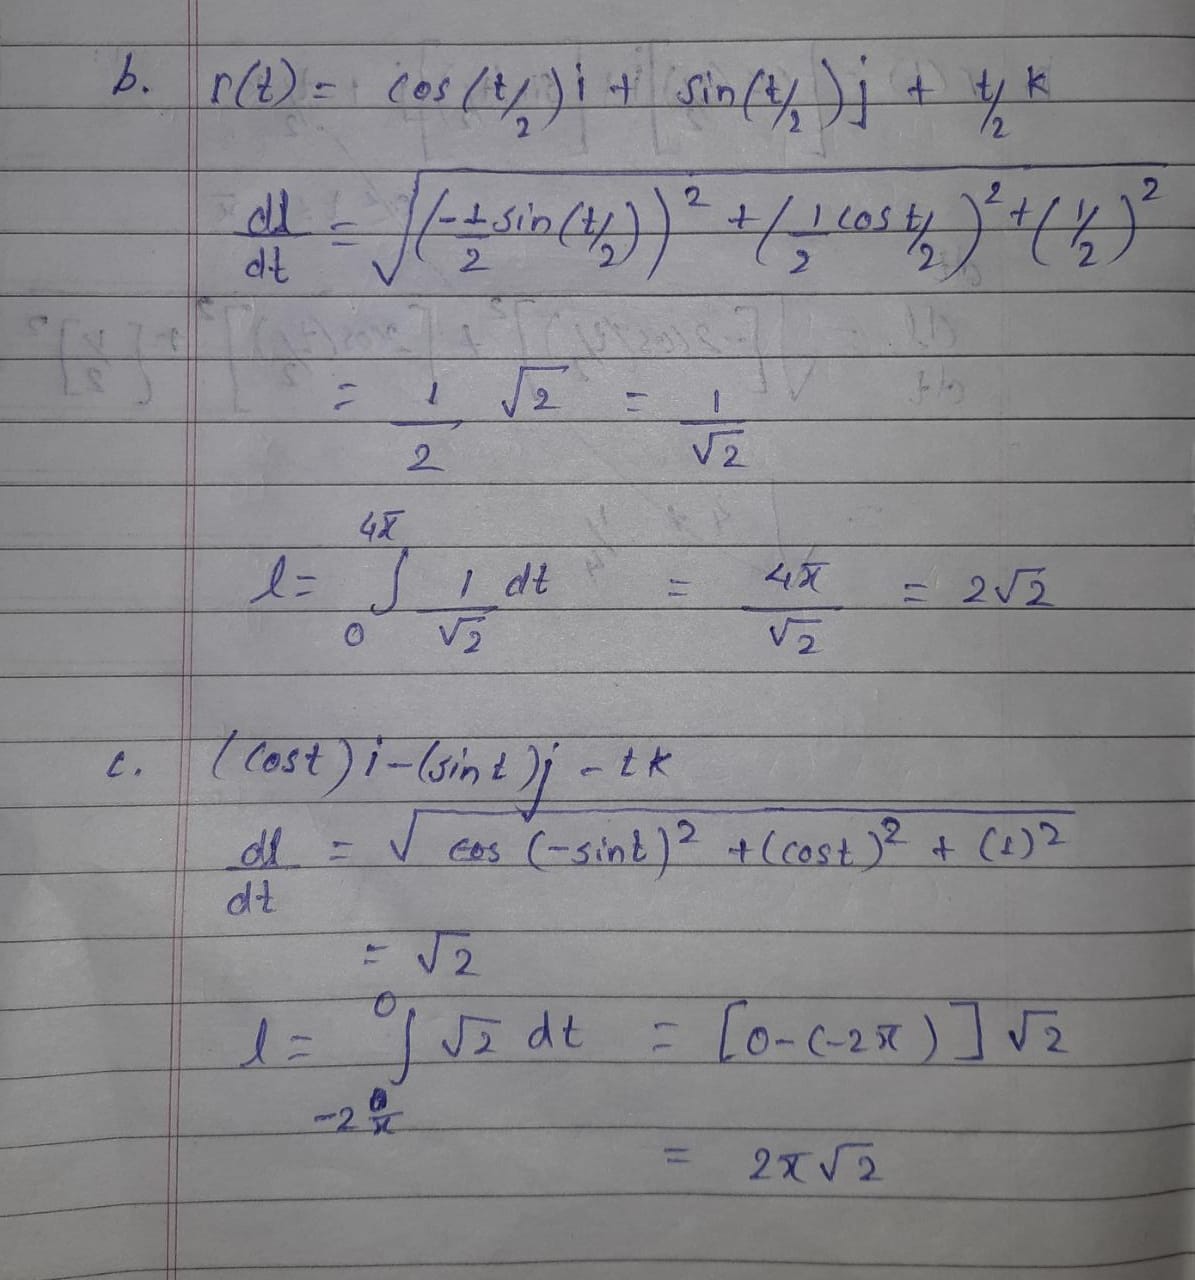 b. r(t) = cos(t/2)i + sin(t/2)j + t/2 k
dl/dt = √((-1/2 sin(t/2))² + (1/2 cos t/2)² + (1/2)²)
= 1/2 √2 = 1/√2
l = ∫₀^4π 1/√2 dt = 4π/√2 = 2√2
c. (cost)i - (sint)j - tk
dl/dt = √(cos (-sint)² + (cost)² + (1)²)
= √2
l = ∫₋₂π^0 √2 dt = [0-(-2π)]√2
= 2π√2